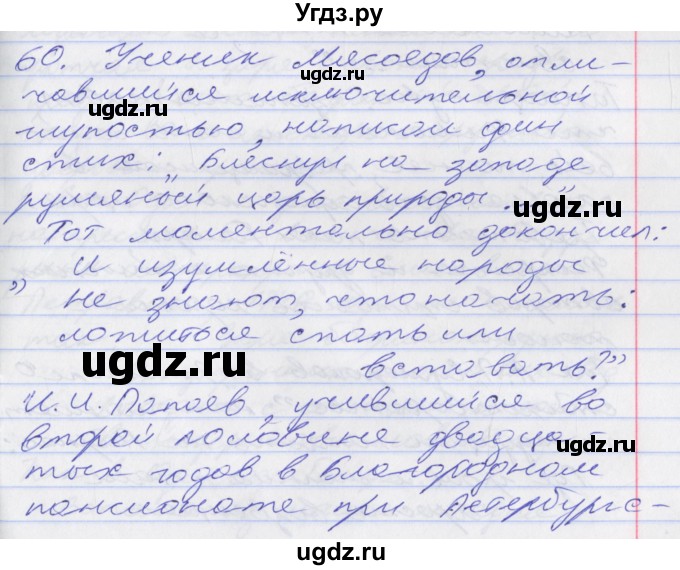 Угдз.ру
60. Ученик Мясоедов, отли-
чавшийся исключительной
глупостью, написал один
стих: „Блеснул на западе
румяный царь природы..."
Тот моментально докончил:
„И изумлённые народы
не знают, что начать:
ложиться спать или
вставать?"
И.И. Папаев, учившийся во
второй половине двадца-
тых годов в Благородном
пансионате при Петербургс-
ugdz.ru
ugdz.ru
ugdz.ru
ugdz.ru
ugdz.ru
ugdz.ru
ugdz.ru